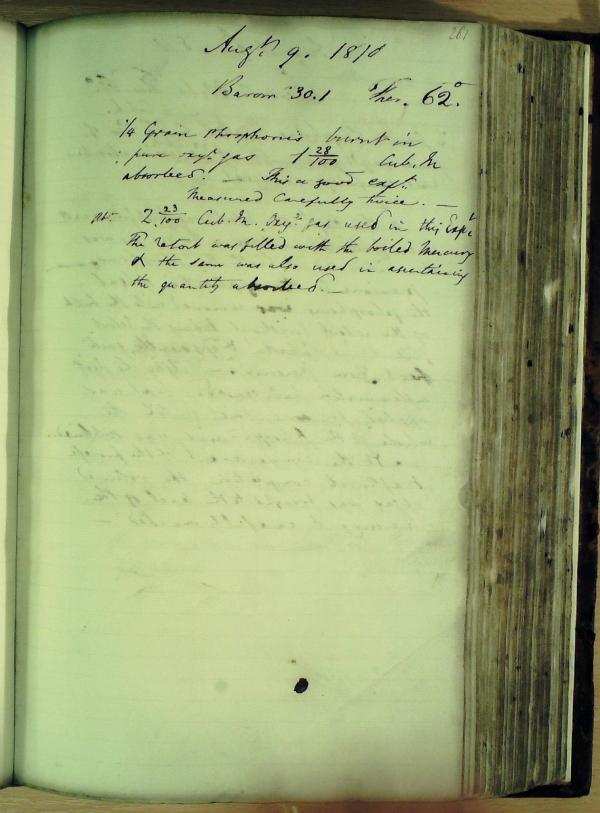 261
Augst 9. 1810
Barom 30.1 Ther. 62°.
1/4 Grain Phosphorus burnt in
pure oxyn gas 1 28/100 Cub. In
absorbed. — This a good expt.
Measured carefully twice. —
2 23/100 Cub. In. Oxyn gas used in this Expt
The retort was filled with the boiled Mercury
& the same was also used in ascertaining
the quantity absorbed. —